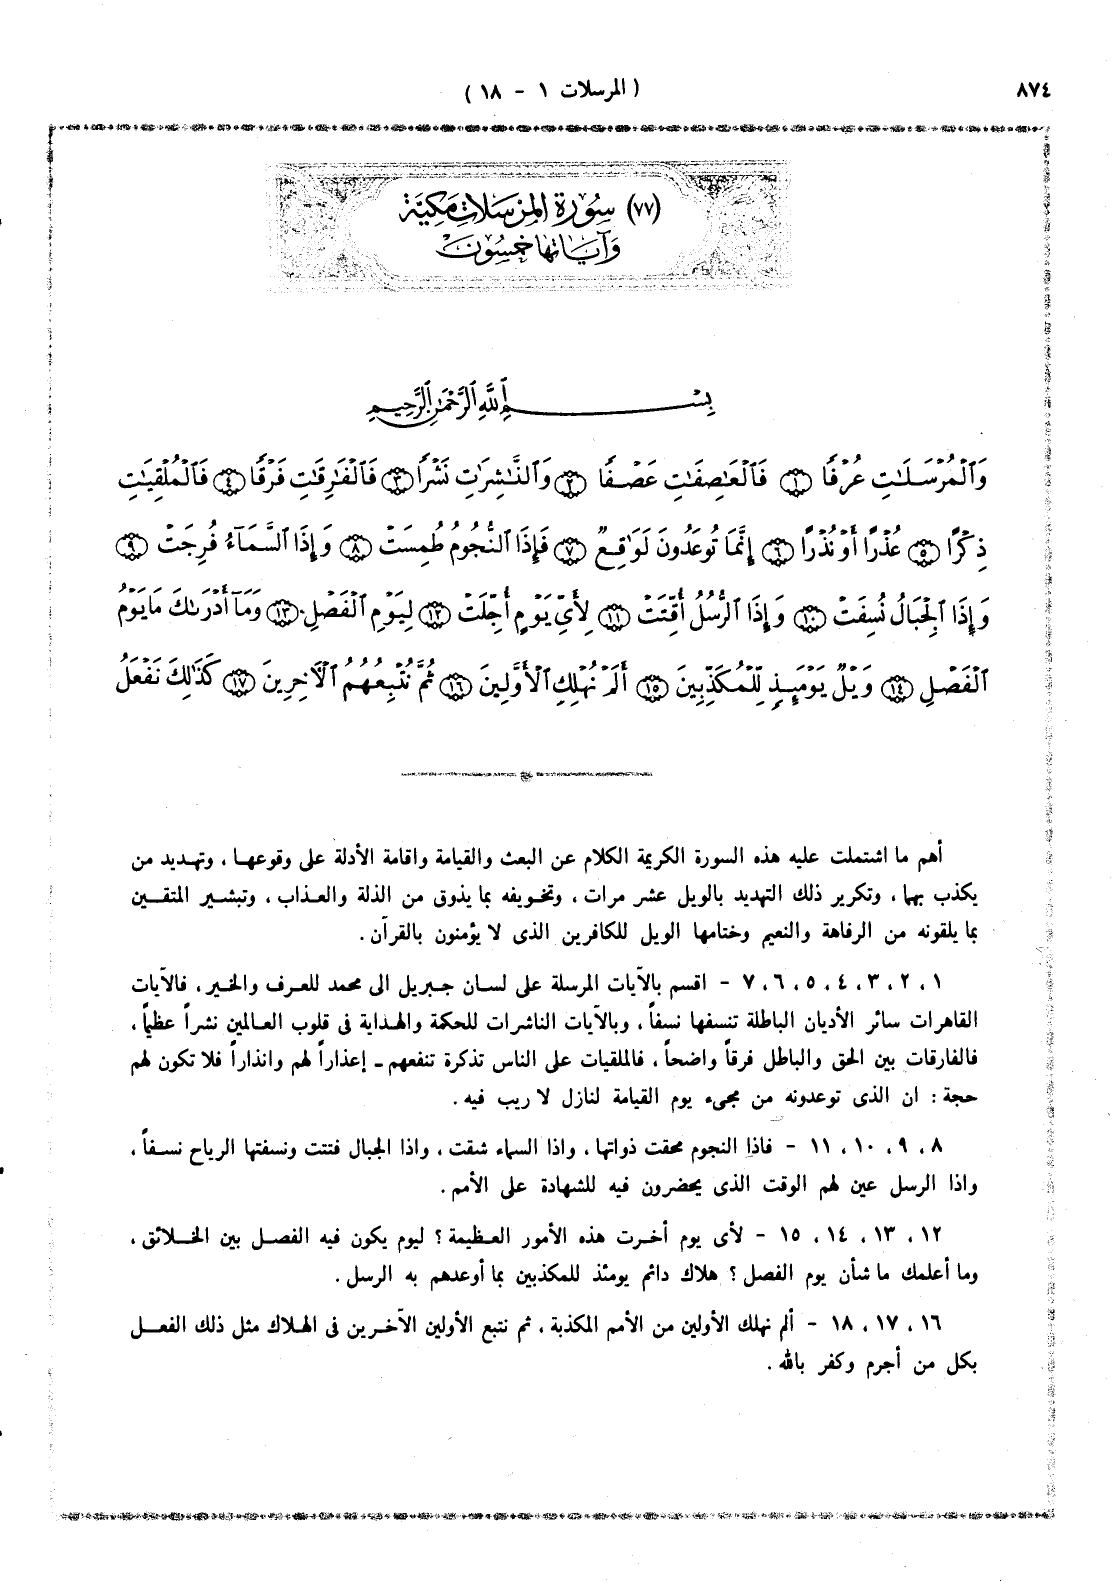 ٨٧٤
( المرسلات ١ - ١٨ )
(٧٧) سُورَة المُرسَلات مَكيَّة
وَآيَاتها خمسُون
بِسْمِ ٱللَّهِ ٱلرَّحْمَٰنِ ٱلرَّحِيمِ
وَٱلْمُرْسَلَٰتِ عُرْفًا ١ فَٱلْعَٰصِفَٰتِ عَصْفًا ٢ وَٱلنَّٰشِرَٰتِ نَشْرًا ٣ فَٱلْفَٰرِقَٰتِ فَرْقًا ٤ فَٱلْمُلْقِيَٰتِ
ذِكْرًا ٥ عُذْرًا أَوْ نُذْرًا ٦ إِنَّمَا تُوعَدُونَ لَوَٰقِعٌ ٧ فَإِذَا ٱلنُّجُومُ طُمِسَتْ ٨ وَإِذَا ٱلسَّمَآءُ فُرِجَتْ ٩
وَإِذَا ٱلْجِبَالُ نُسِفَتْ ١٠ وَإِذَا ٱلرُّسُلُ أُقِّتَتْ ١١ لِأَىِّ يَوْمٍ أُجِّلَتْ ١٢ لِيَوْمِ ٱلْفَصْلِ ١٣ وَمَآ أَدْرَىٰكَ مَا يَوْمُ
ٱلْفَصْلِ ١٤ وَيْلٌ يَوْمَئِذٍ لِّلْمُكَذِّبِينَ ١٥ أَلَمْ نُهْلِكِ ٱلْأَوَّلِينَ ١٦ ثُمَّ نُتْبِعُهُمُ ٱلْآخِرِينَ ١٧ كَذَٰلِكَ نَفْعَلُ
أهم ما اشتملت عليه هذه السورة الكريمة الكلام عن البعث والقيامة واقامة الأدلة على وقوعها ، وتهديد من
يكذب بها ، وتكرير ذلك التهديد بالويل عشر مرات ، وتخويفه بما يذوق من الذلة والعذاب ، وتبشير المتقين
بما يلقونه من الرفاهة والنعيم وختامها الويل للكافرين الذى لا يؤمنون بالقرآن .
١ ، ٢ ، ٣ ، ٤ ، ٥ ، ٦ ، ٧ - اقسم بالآيات المرسلة على لسان جبريل الى محمد للعرف والخير ، فالآيات
القاهرات سائر الأديان الباطلة تنسفها نسفاً ، وبالآيات الناشرات للحكمة والهداية فى قلوب العالمين نشراً عظيماً ،
فالفارقات بين الحق والباطل فرقاً واضحاً ، فالملقيات على الناس تذكرة تنفعهم - إعذاراً لهم وانذاراً فلا تكون لهم
حجة : ان الذى توعدونه من مجىء يوم القيامة لنازل لا ريب فيه .
٨ ، ٩ ، ١٠ ، ١١ - فاذا النجوم محقت ذواتها ، واذا السماء شقت ، واذا الجبال فتتت ونسفتها الرياح نسفاً ،
واذا الرسل عين لهم الوقت الذى يحضرون فيه للشهادة على الأمم .
١٢ ، ١٣ ، ١٤ ، ١٥ - لأى يوم أخرت هذه الأمور العظيمة ؟ ليوم يكون فيه الفصل بين الخلائق ،
وما أعلمك ما شأن يوم الفصل ؟ هلاك دائم يومئذ للمكذبين بما أوعدهم به الرسل .
١٦ ، ١٧ ، ١٨ - ألم نهلك الأولين من الأمم المكذبة ، ثم نتبع الأولين الآخرين فى الهلاك مثل ذلك الفعل
بكل من أجرم وكفر بالله .